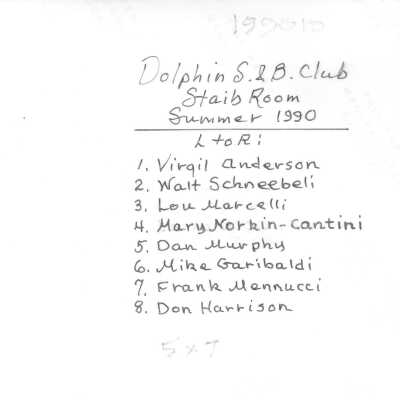 Dolphin S. & B. Club
Staib Room
Summer 1990
L to R:
1. Virgil Anderson
2. Walt Schneebeli
3. Lou Marcelli
4. Mary Norkin-Cantini
5. Dan Murphy
6. Mike Garibaldi
7. Frank Mennucci
8. Don Harrison
5x7